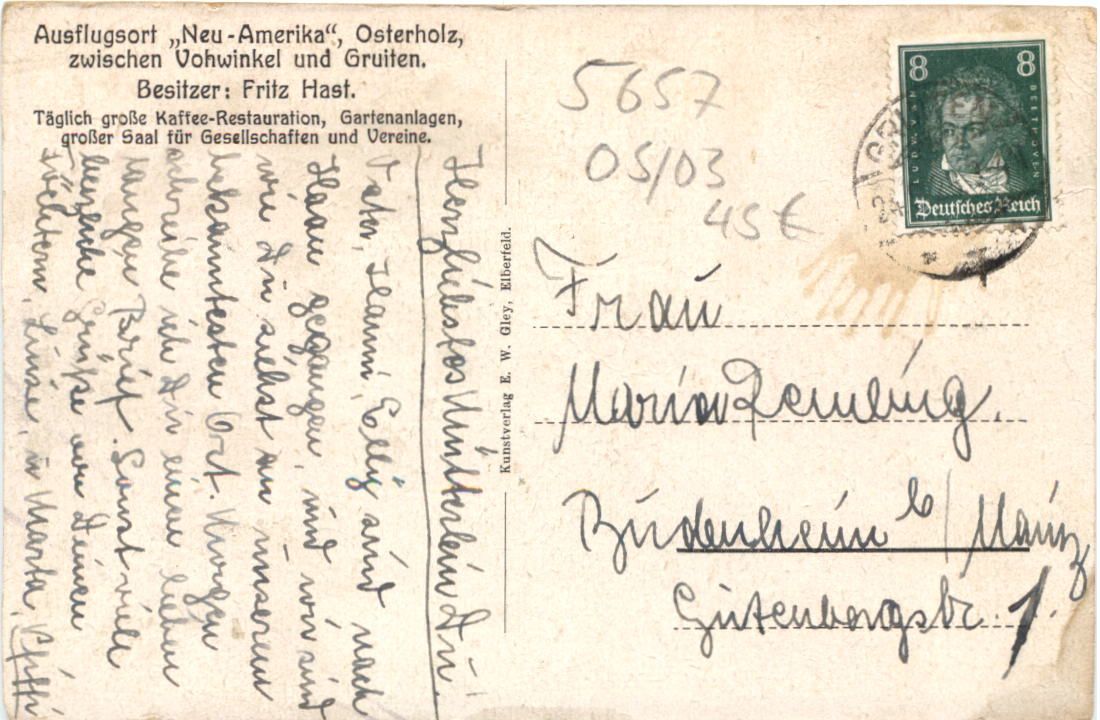 Ausflugsort „Neu-Amerika“, Osterholz,
zwischen Vohwinkel und Gruiten.
Besitzer: Fritz Hast.
Täglich große Kaffee-Restauration, Gartenanlagen,
großer Saal für Gesellschaften und Vereine.
Herzliebstes Mütterlein Du.
Hanni, Elly sind nach
Haan gegangen, und wir sind
wie Du siehst an unserem
bekanntesten Ort. Morgen
schreibe ich Dir einen lieben
langen Brief. Sonst viele
herzliche Grüße von Deinen
Töchtern, Luise, u Marta,
Kunstverlag E. W. Gley, Elberfeld.
5657
05/03
45 €
8 8
LUDWIG VAN BEETHOVEN
Deutsches Reich
Frau
Maria Remling.
Budenheim b/Mainz
Gutenbergstr. 1.